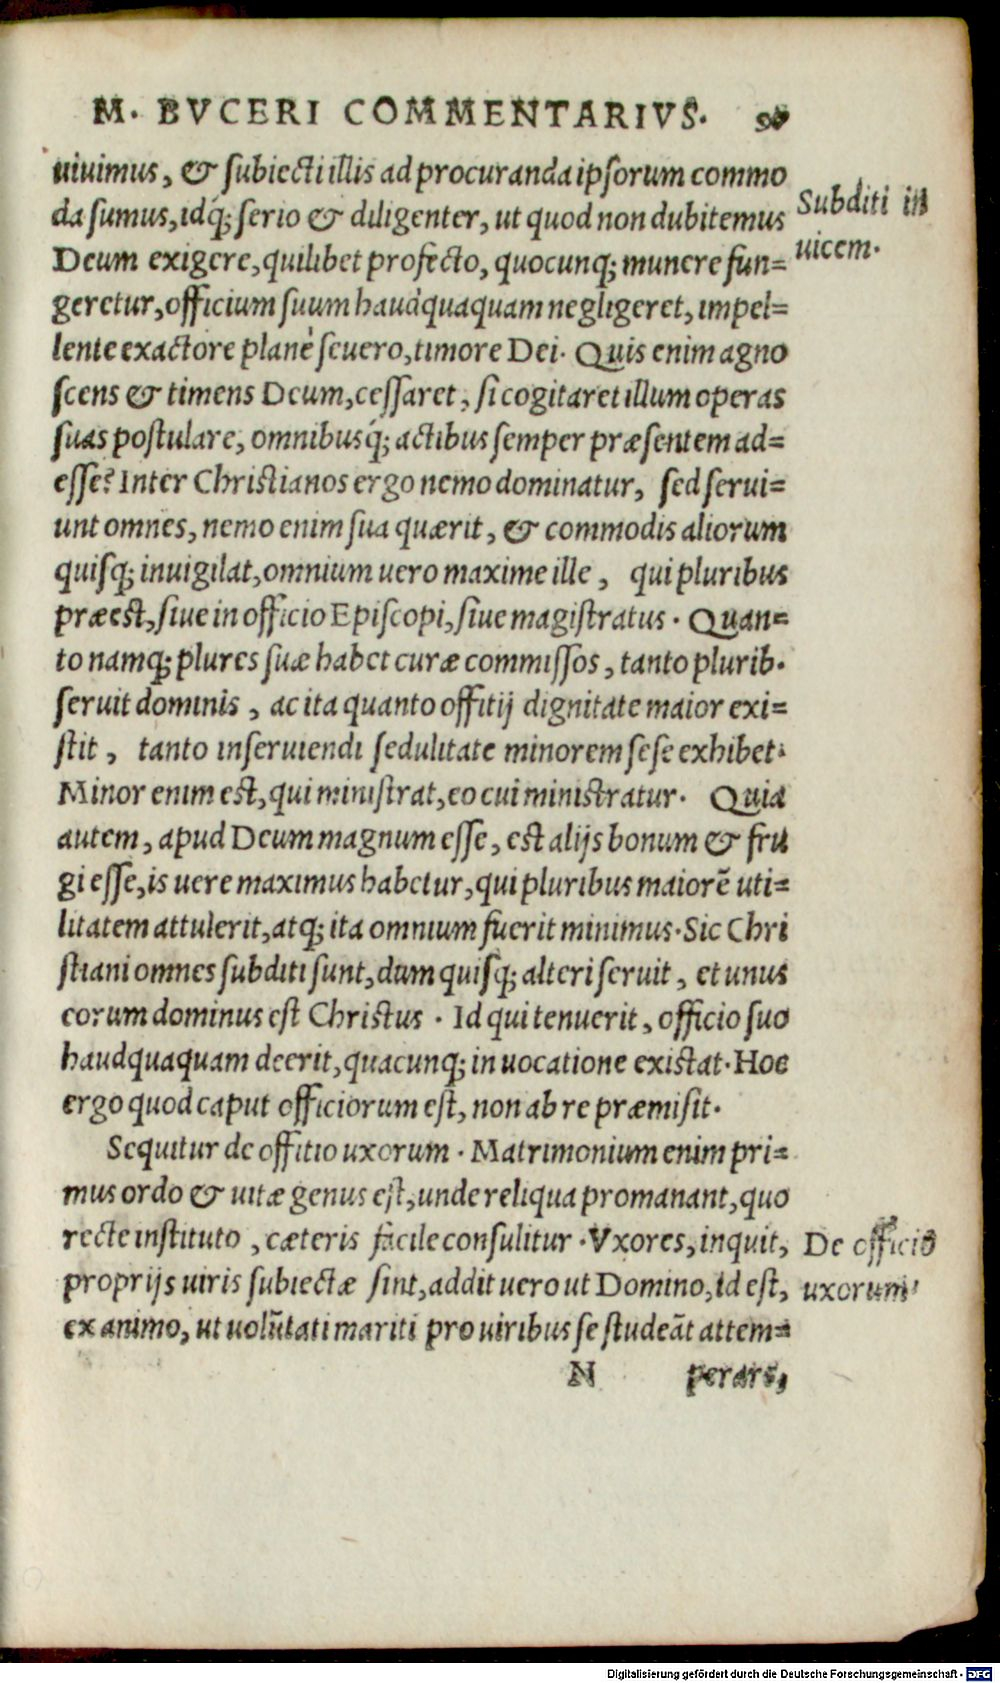 M. BVCERI COMMENTARIVS.
uiuimus, & ſubiecti illis ad procuranda ipſorum commo
da ſumus, idq́; ſerio & diligenter, ut quod non dubitemus
Subditi in
Deum exigere, quilibet profecto, quocunq; munere fun=
uicem.
geretur, officium ſuum haudquaquam negligeret, impel=
lente exactore planè ſeuero, timore Dei. Quis enim agno
ſcens & timens Deum, ceſſaret, ſi cogitaret illum operas
ſuas poſtulare, omnibusq́; actibus ſemper præſentem ad=
eſſe? Inter Chriſtianos ergo nemo dominatur, ſed ſerui=
unt omnes, nemo enim ſua quærit, & commodis aliorum
quiſq; inuigilat, omnium uero maxime ille, qui pluribus
præeſt, ſiue in officio Epiſcopi, ſiue magiſtratus. Quan=
to namq; plures ſuæ habet curæ commiſſos, tanto plurib.
ſeruit dominis, ac ita quanto offitij dignitate maior exi=
ſtit, tanto inſeruiendi ſedulitate minorem ſeſe exhibet.
Minor enim eſt, qui miniſtrat, eo cui miniſtratur. Quia
autem, apud Deum magnum eſſe, eſt alijs bonum & fru
gi eſſe, is uere maximus habetur, qui pluribus maiorē uti=
litatem attulerit, atq; ita omnium fuerit minimus. Sic Chri
ſtiani omnes ſubditi ſunt, dum quiſq; alteri ſeruit, et unus
eorum dominus eſt Chriſtus. Id qui tenuerit, officio ſuo
haudquaquam deerit, quacunq; in uocatione exiſtat. Hoc
ergo quod caput officiorum eſt, non ab re præmiſit.
Sequitur de offitio uxorum. Matrimonium enim pri=
mus ordo & uitæ genus eſt, unde reliqua promanant, quo
recte inſtituto, cæteris facile conſulitur. Vxores, inquit,
De officio
proprijs uiris ſubiectæ ſint, addit uero ut Domino, id eſt,
uxorum.
ex animo, ut uolūtati mariti pro uiribus ſe ſtudeāt attem=
N perare,
Digitalisierung gefördert durch die Deutsche Forschungsgemeinschaft - DFG